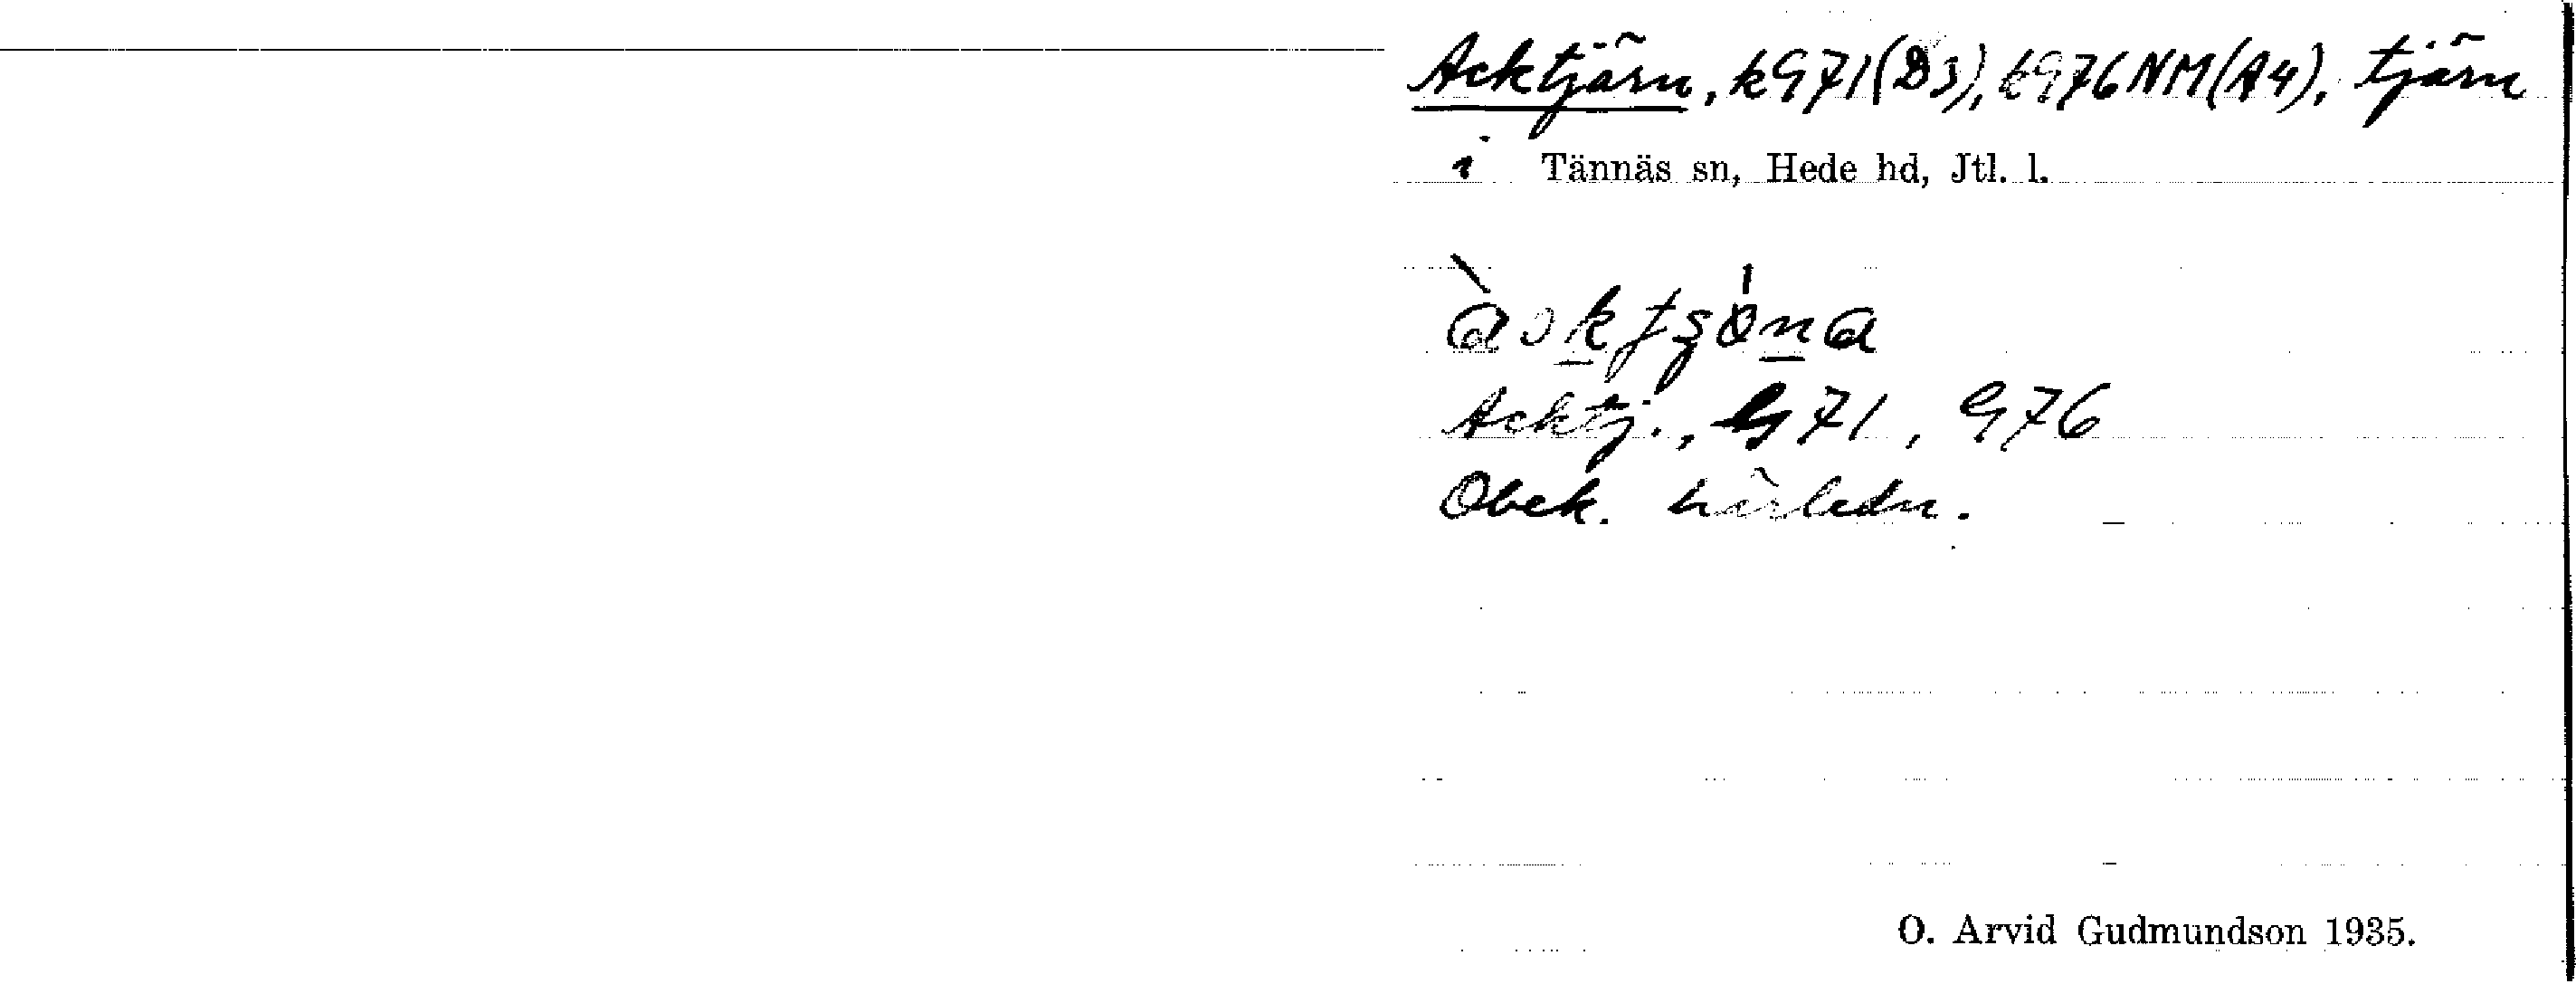 Acktjärn, kG71(D3), kG76NM(A4), tjärn
i Tännäs sn, Hede hd, Jtl. l.
Acktj., G71, G76
Obek. härledn.
O. Arvid Gudmundson 1935.